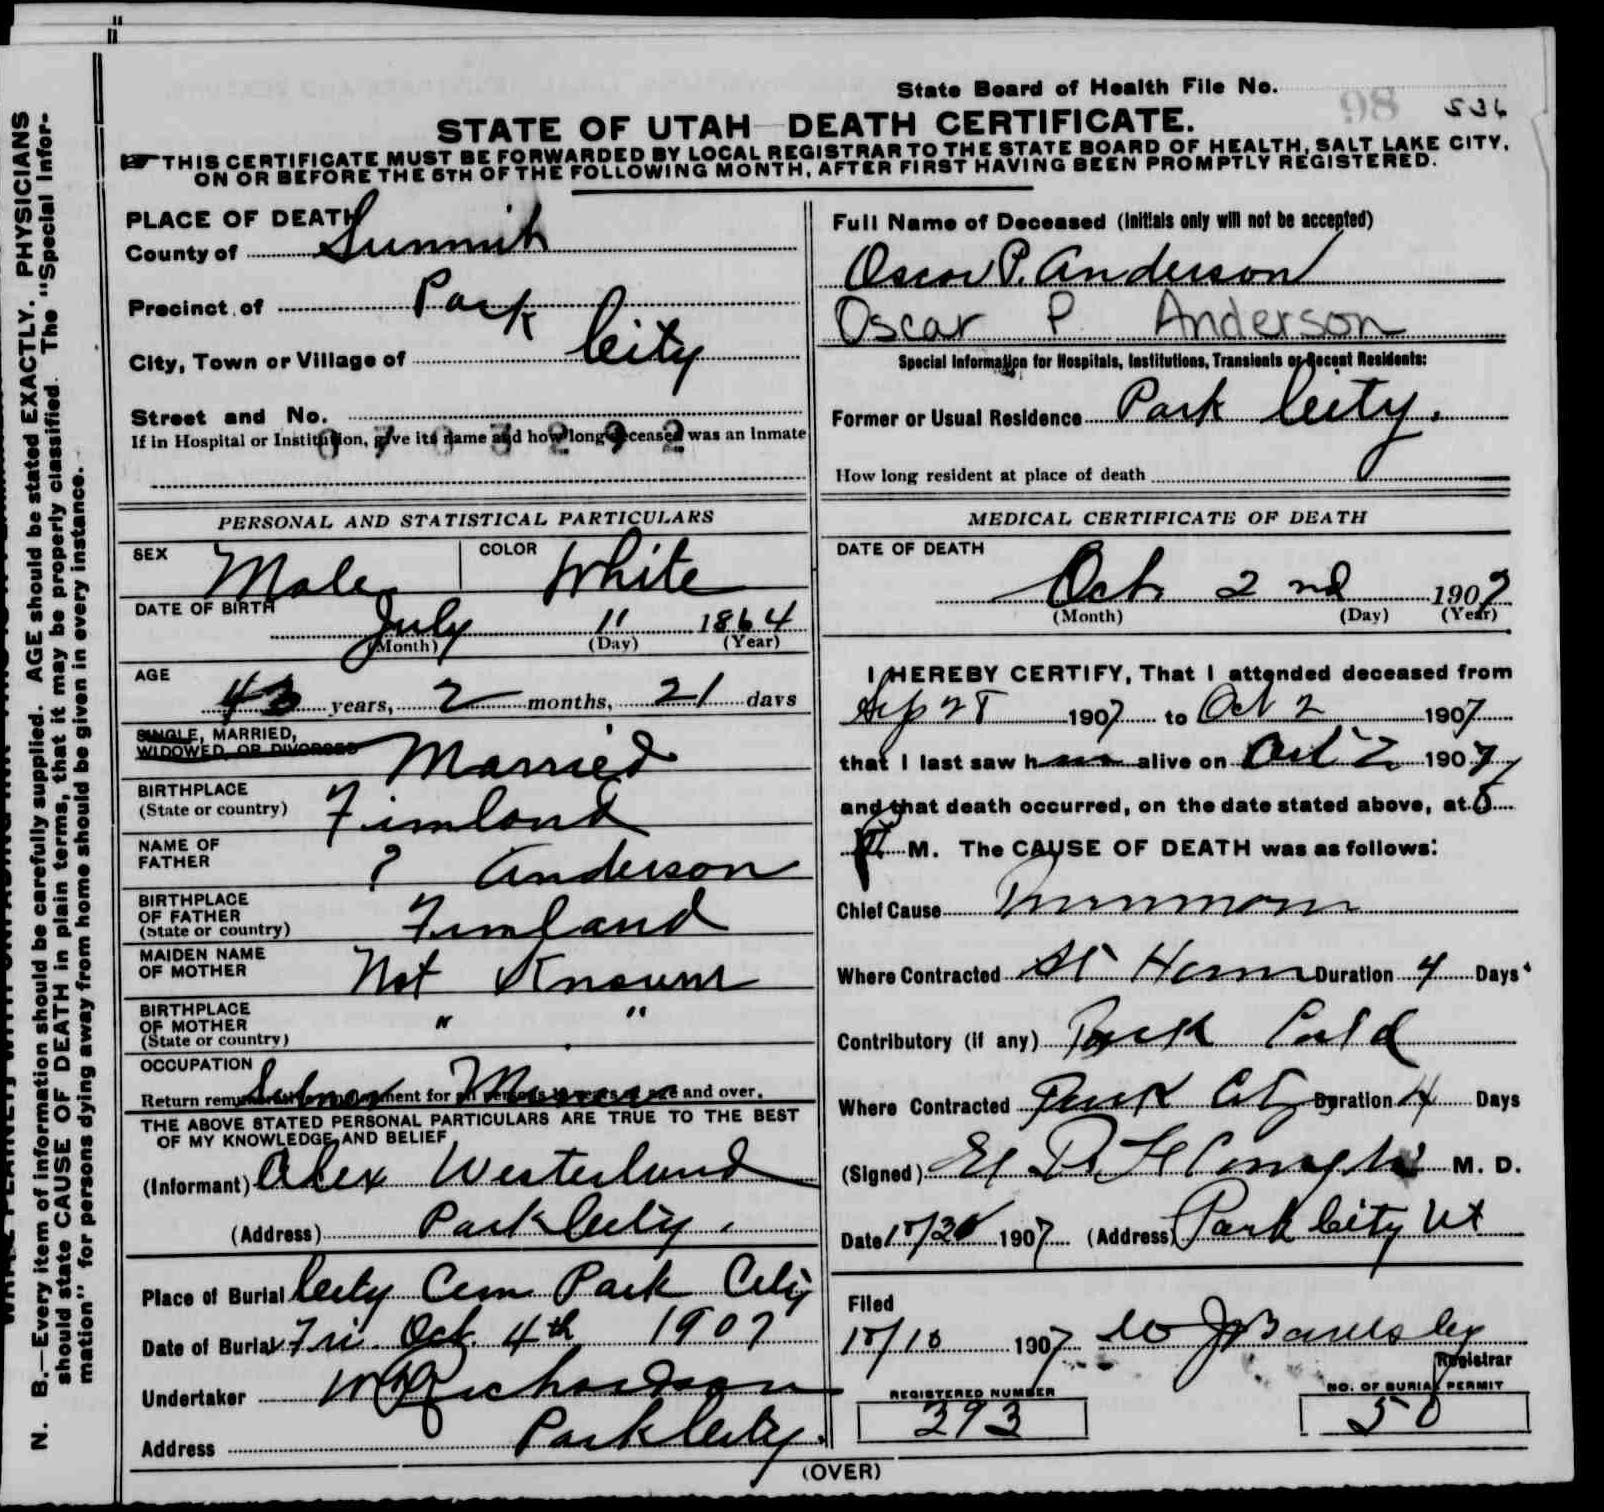 State Board of Health File No. 98 536
STATE OF UTAH DEATH CERTIFICATE.
THIS CERTIFICATE MUST BE FORWARDED BY LOCAL REGISTRAR TO THE STATE BOARD OF HEALTH, SALT LAKE CITY,
ON OR BEFORE THE 5TH OF THE FOLLOWING MONTH, AFTER FIRST HAVING BEEN PROMPTLY REGISTERED.
PLACE OF DEATH
County of Summit
Precinct of Park
City, Town or Village of City
Street and No.
If in Hospital or Institution, give its name and how long deceased was an Inmate
Full Name of Deceased (Initials only will not be accepted)
Oscar P. Anderson
Oscar P Anderson
Special Information for Hospitals, Institutions, Transients or Recent Residents:
Former or Usual Residence Park City.
How long resident at place of death
PERSONAL AND STATISTICAL PARTICULARS
SEX Male COLOR White
DATE OF BIRTH
July 11 1864
(Month) (Day) (Year)
AGE
43 years, 2 months, 21 days
SINGLE, MARRIED,
WIDOWED, OR DIVORCED Married
BIRTHPLACE
(State or country) Finland
NAME OF
FATHER ? Anderson
BIRTHPLACE
OF FATHER
(State or country) Finland
MAIDEN NAME
OF MOTHER Not Known
BIRTHPLACE
OF MOTHER
(State or country) " "
OCCUPATION
Miner
THE ABOVE STATED PERSONAL PARTICULARS ARE TRUE TO THE BEST
OF MY KNOWLEDGE AND BELIEF
(Informant) Alex Westerlund
(Address) Park City.
Place of Burial City Cem Park City
Date of Burial Fri. Oct. 4th 1907
Undertaker W Richardson
Address Park City.
MEDICAL CERTIFICATE OF DEATH
DATE OF DEATH
Oct 2nd 1907
(Month) (Day) (Year)
I HEREBY CERTIFY, That I attended deceased from
Sep 28 1907 to Oct 2 1907
that I last saw him alive on Oct 2 1907
and that death occurred, on the date stated above, at 5
P M. The CAUSE OF DEATH was as follows:
Chief Cause Pneumonia
Where Contracted At Home Duration 4 Days
Contributory (if any) Cold
Where Contracted Park City Duration 4 Days
(Signed) M. D.
Date 1907 (Address) Park City Ut
Filed
10/10 1907 Registrar
REGISTERED NUMBER
393
NO. OF BURIAL PERMIT
50
(OVER)
N. B.—Every item of information should be carefully supplied. AGE should be stated EXACTLY. PHYSICIANS
should state CAUSE OF DEATH in plain terms, that it may be properly classified. The "Special Infor-
mation" for persons dying away from home should be given in every instance.